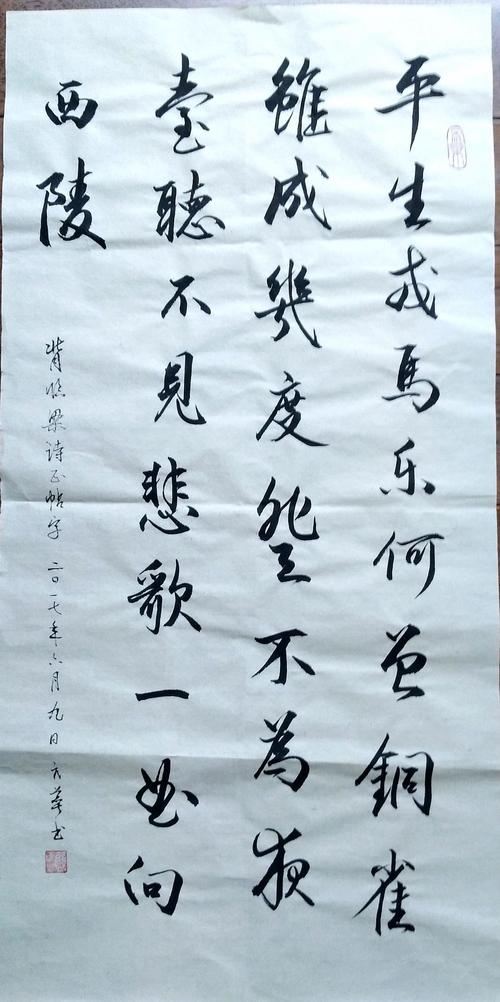 平生戎馬乐何曾銅雀
雖成幾度登不為夜
臺聽不見悲歌一曲向
西陵
背临梁诗正帖字 二〇一七年六月九日 华书